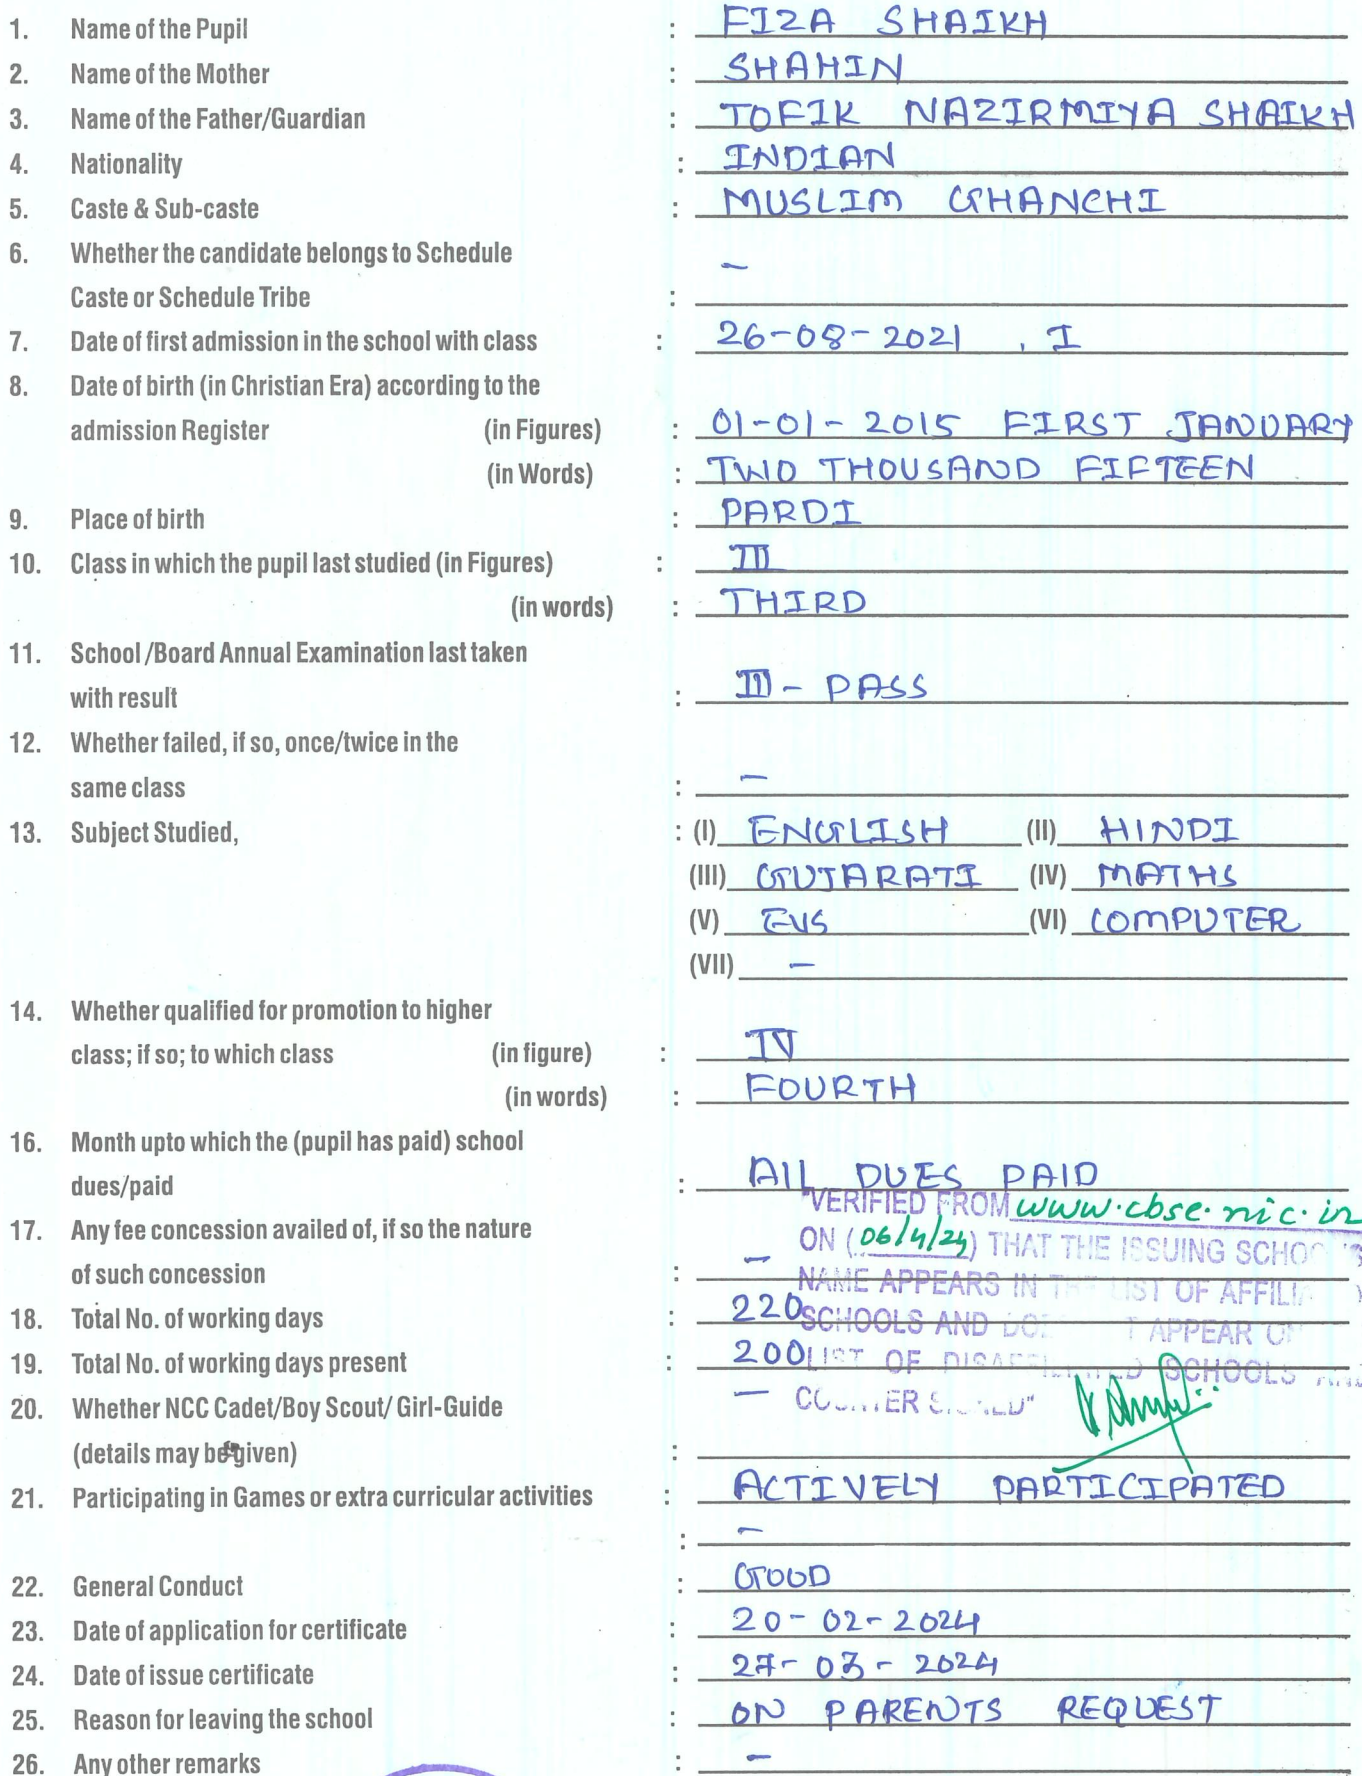 1. Name of the Pupil : FIZA SHAIKH
2. Name of the Mother : SHAHIN
3. Name of the Father/Guardian : TOFIK NAZIRMIYA SHAIKH
4. Nationality : INDIAN
5. Caste & Sub-caste : MUSLIM GHANCHI
6. Whether the candidate belongs to Schedule –
Caste or Schedule Tribe :
7. Date of first admission in the school with class : 26-08-2021 , I
8. Date of birth (in Christian Era) according to the
admission Register (in Figures) : 01-01-2015 FIRST JANUARY
(in Words) : TWO THOUSAND FIFTEEN
9. Place of birth : PARDI
10. Class in which the pupil last studied (in Figures) : III
(in words) : THIRD
11. School /Board Annual Examination last taken
with result : III - PASS
12. Whether failed, if so, once/twice in the
same class : –
13. Subject Studied, : (I) ENGLISH (II) HINDI
(III) GUJARATI (IV) MATHS
(V) EVS (VI) COMPUTER
(VII) –
14. Whether qualified for promotion to higher
class; if so; to which class (in figure) : IV
(in words) : FOURTH
16. Month upto which the (pupil has paid) school
dues/paid : All DUES PAID
"VERIFIED FROM www.cbse.nic.in
17. Any fee concession availed of, if so the nature – ON (06/4/24) THAT THE ISSUING
of such concession : NAME APPEARS IN THE LIST OF
18. Total No. of working days : 220 SCHOOLS AND APPEAR
19. Total No. of working days present : 200 LIST OF SCHOOLS
20. Whether NCC Cadet/Boy Scout/ Girl-Guide –
(details may be given) :
21. Participating in Games or extra curricular activities : ACTIVELY PARTICIPATED
: –
22. General Conduct : GOOD
23. Date of application for certificate : 20-02-2024
24. Date of issue certificate : 27-03-2024
25. Reason for leaving the school : ON PARENTS REQUEST
26. Any other remarks : –